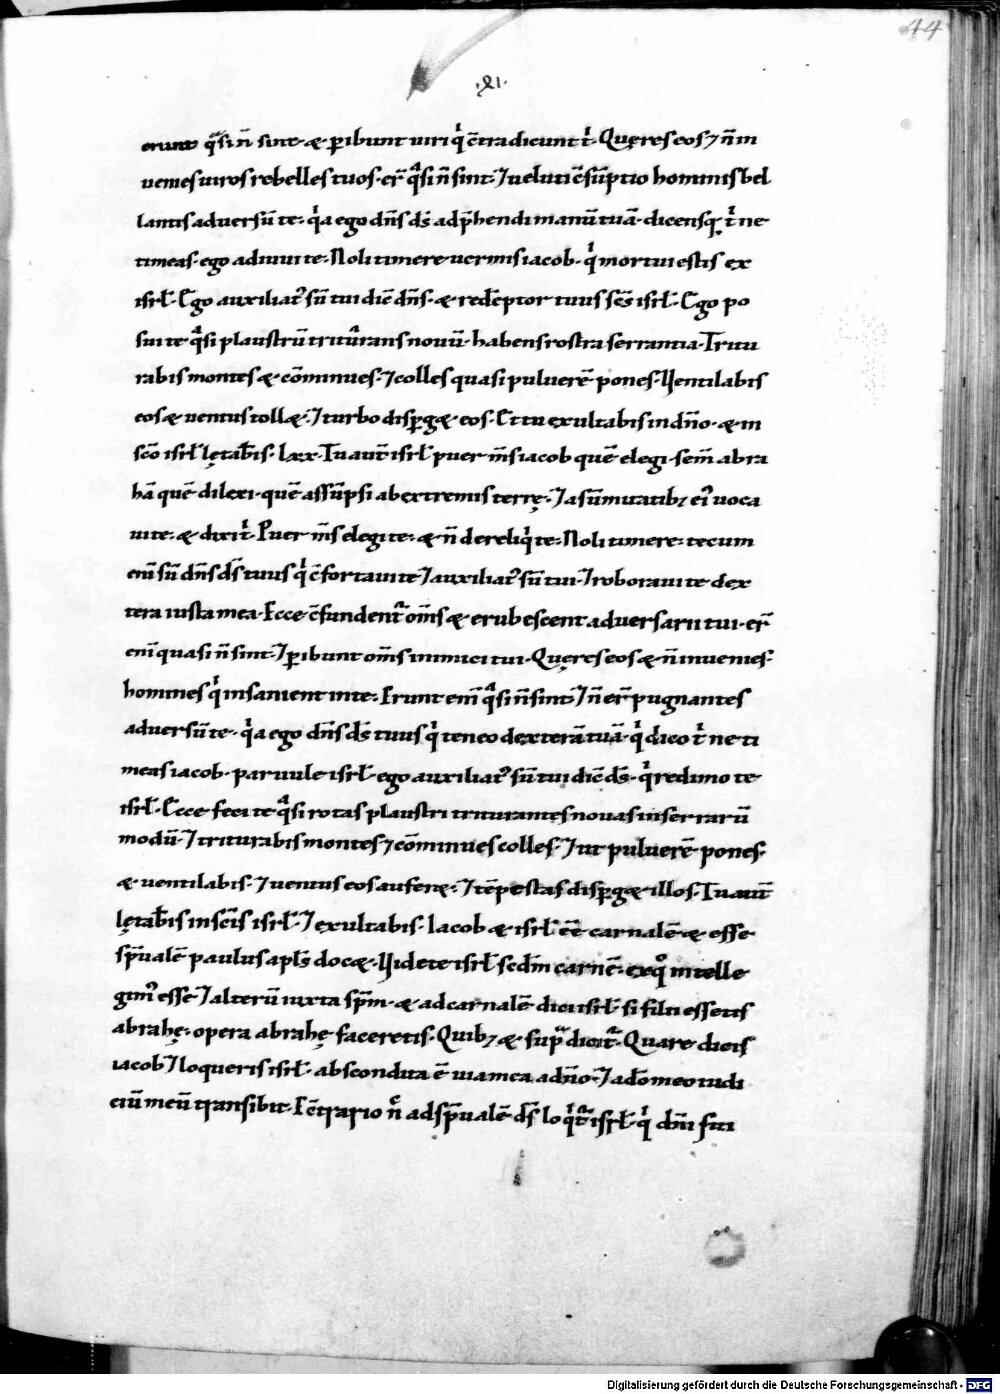 44
·XLI·
erunt q̅si n̅ sint & ꝑibunt uiri qͥ c̅tradicunt tͥ. Quęres eos ⁊ n̅ in
uenies uiros rebelles tuos. er̅ q̅si n̅ sint. ⁊ ueluti c̅su̅ptio hominis bel
lantis aduersu̅ te. qͥa ego dn̅s ds̅ adp̅hendi manu̅ tua̅. dicensq. tͥ ne
timeas. ego adiuui te. Noli timere uermis iacob. qͥ mortui estis ex
isrl̅. Ego auxiliat᷒ su̅ tui dic̅ dn̅s. & rede̅ptor tuus sc̅s isrl̅. Ego po
sui te q̅si plaustru̅ tritu̅rans nouu̅. habens rostra serrantia. Tritu
rabis montes & co̅minues. ⁊ colles quasi puluere̅ pones. Uentilabis
eos & uentus toll&. ⁊ turbo disꝑg& eos. Et tu exultabis in dn̅o. & in
sc̅o isrl̅ lętab̅is. lxx. Tu aut̅ isrl̅ puer m̅s iacob que̅ elegi. sem̅ abra
ha̅ que̅ dilexi. que̅ assu̅psi ab extremis terrę. ⁊ a su̅mitatib; ei᷒ uoca
ui te. & dixi tͥ. Puer m̅s elegi te. & n̅ dereliqͥ te. Noli timere. tecum
eni̅ su̅ dn̅s ds̅ tuus qͥ c̅fortaui te ⁊ auxiliat᷒ su̅ tui. ⁊ roboraui te dex
tera iusta mea. Ecce c̅fundent᷒ om̅s & erubescent aduersarii tui. er̅
eni̅ quasi n̅ sint. ⁊ ꝑibunt om̅s inimici tui. Quęres eos & n̅ inuenies.
homines qͥ insanient in te. Erunt eni̅ q̅si n̅ sint. ⁊ n̅ er̅ pugnantes
aduersu̅ te. qͥa ego dn̅s ds̅ tuus qͥ teneo dextera̅ tua̅. qͥ dico tͥ ne ti
meas iacob. paruule isrl̅. ego auxiliat᷒ su̅ tui dic̅ ds̅. qͥ redimo te
isrl̅. Ecce feci te q̅si rotas plaustri triturantes nouas in serraru̅
modu̅. ⁊ triturabis montes ⁊ co̅minues colles. ⁊ ut puluere̅ pones.
& uentilabis. ⁊ uentus eos aufer&. ⁊ te̅pestas disꝑg& illos. Tu aut̅
lętab̅is in sc̅is isrl̅. ⁊ exultabis. Iacob & isrl̅ e̅e̅ carnale̅ & esse
sp̅uale̅ paulus apl̅s doc&. Uidete isrl̅ scd̅m carne̅. ex qͦ intelle
gim᷒ esse ⁊ alteru̅ iuxta sp̅m. & ad carnale̅ dici isrl̅. si filii essetis
abrahę. opera abrahę faceretis. Quib; & sup̅ dicit᷒. Quare dicis
iacob ⁊ loqueris isrl̅. abscondita e̅ uia mea a dn̅o. ⁊ a do̅ meo iudi
ciu̅ meu̅ transibit. E c̅trario n̅c ad sp̅uale̅ ds̅ loqͥt᷒ isrl̅. qͥ dn̅i sui
Digitalisierung gefördert durch die Deutsche Forschungsgemeinschaft - DFG